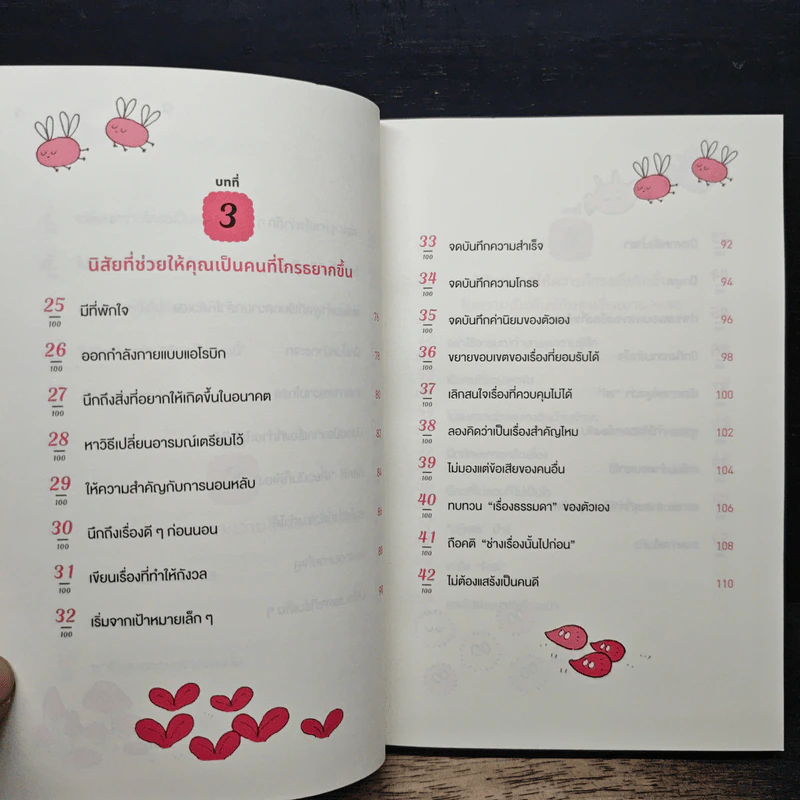 บทที่
3
นิสัยที่ช่วยให้คุณเป็นคนที่โกรธยากขึ้น
25/100 มีที่พักใจ 76
26/100 ออกกำลังกายแบบแอโรบิก 78
27/100 นึกถึงสิ่งที่อยากให้เกิดขึ้นในอนาคต 80
28/100 หาวิธีเปลี่ยนอารมณ์เตรียมไว้ 82
29/100 ให้ความสำคัญกับการนอนหลับ 84
30/100 นึกถึงเรื่องดี ๆ ก่อนนอน 86
31/100 เขียนเรื่องที่ทำให้กังวล
32/100 เริ่มจากเป้าหมายเล็ก ๆ
33/100 จดบันทึกความสำเร็จ 92
34/100 จดบันทึกความโกรธ 94
35/100 จดบันทึกค่านิยมของตัวเอง 96
36/100 ขยายขอบเขตของเรื่องที่ยอมรับได้ 98
37/100 เลิกสนใจเรื่องที่ควบคุมไม่ได้ 100
38/100 ลองคิดว่าเป็นเรื่องสำคัญไหม 102
39/100 ไม่มองแต่ข้อเสียของคนอื่น 104
40/100 ทบทวน “เรื่องธรรมดา” ของตัวเอง 106
41/100 ถือคติ “ช่างเรื่องนั้นไปก่อน” 108
42/100 ไม่ต้องแสร้งเป็นคนดี 110